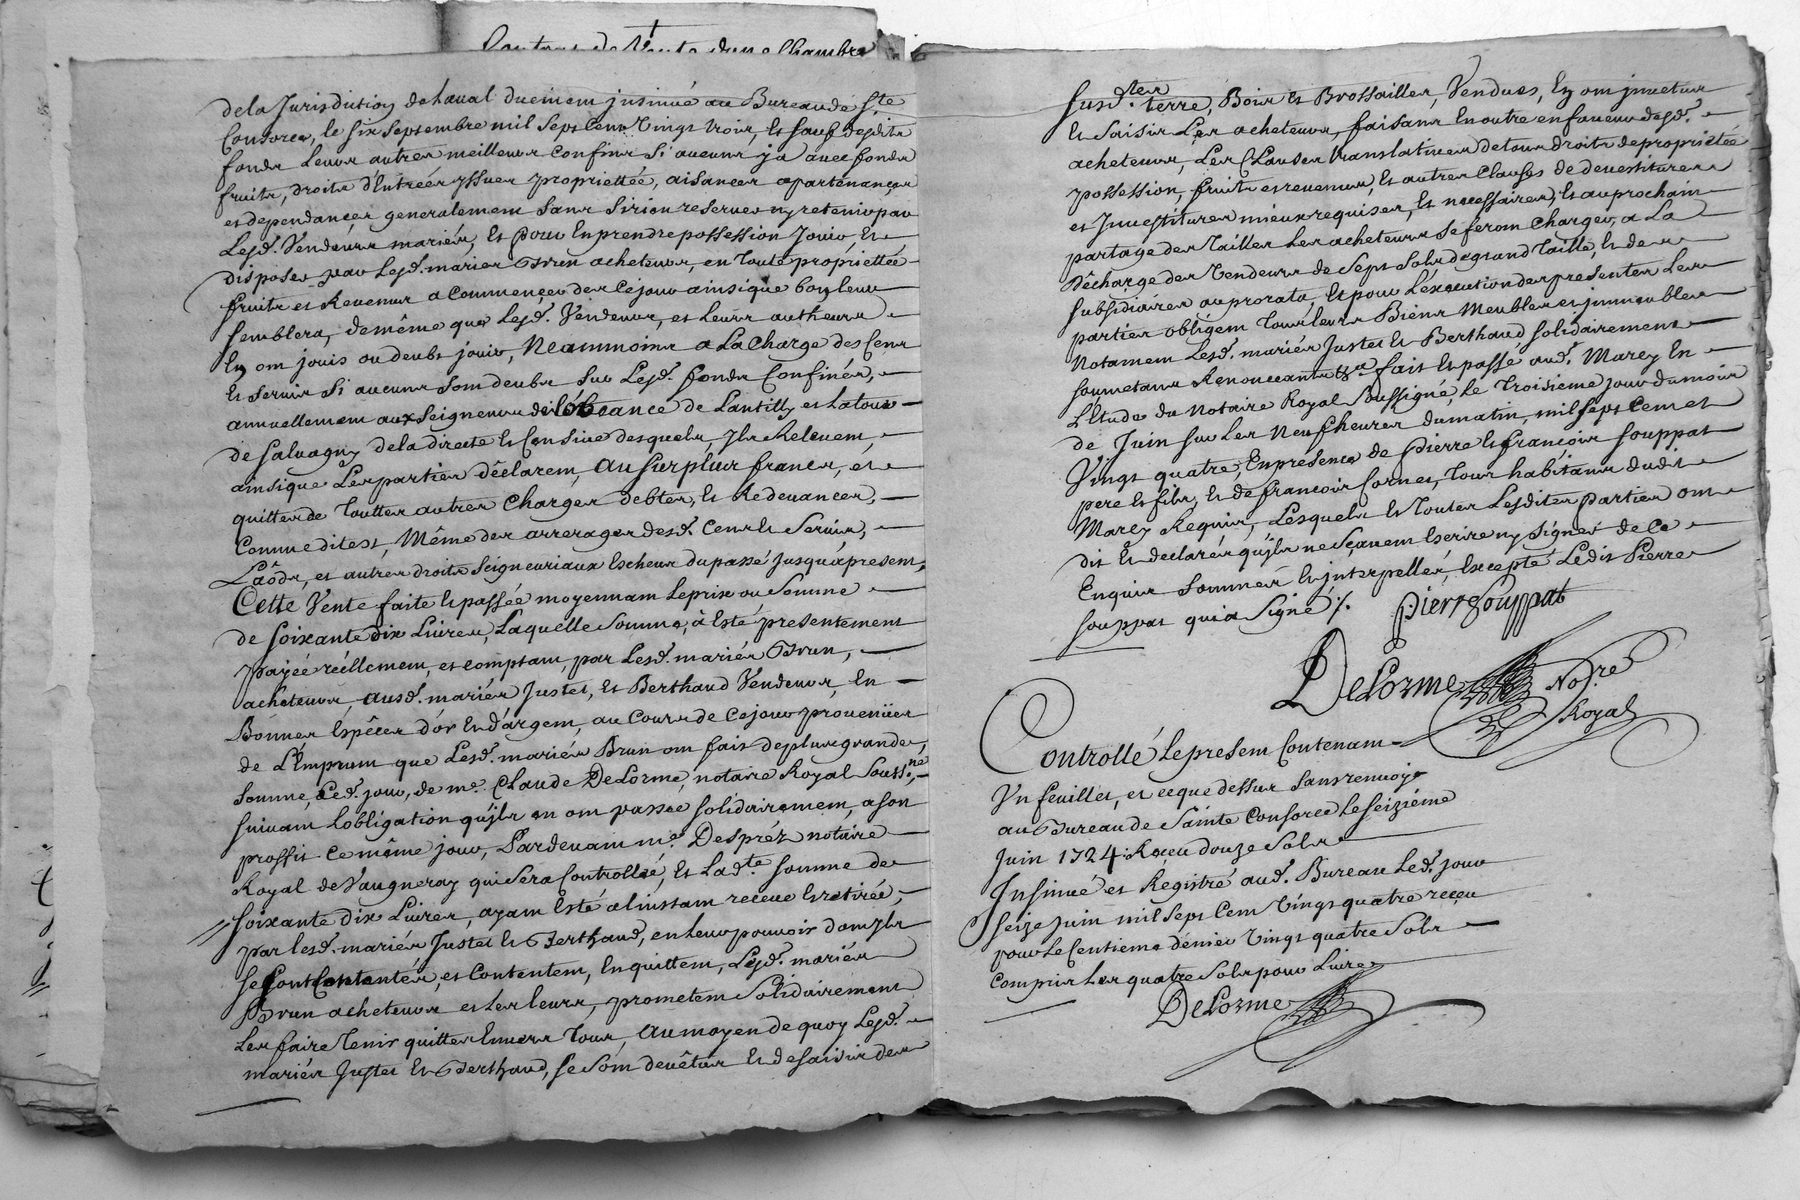 Contrat de Vente d'une Chambre
de la Jurisdiction de laval duement jnsinué au Bureau de Ste
Consorce, le six septembre mil sept Cent Vingt trois, et sauf desdits
fonds leurs autres meilleurs Confins si aucuns y a avec fonds
fruits, droits d'Entrées yssues propriettée, aisances apartenances
et dependances generalement sans sirien reserver ny retenir par
Lesd. Vendeurs mariés, Et pour En prendre possession Jouir, Et
disposer par Lesd. mariés Brun acheteurs, en toute propriettée
fruits et Revenus a Commencer des Ce jour ainsi que bon leur
semblera, de même que Lesd. Vendeurs, et leurs autheurs
En ont jouis ou deubt jouir, Neammoins a La Charge des Cens
Et servis si aucuns sont deubs sur Lesd. fonds Confinés,
annuellement aux seigneurs de de Lantilly et Latour
de salvagny de la directe et Censive desquels, yls Relevent,
ainsi que Les parties déclarent, Au surplus francs, et
quittes de touttes autres Charges debtes, et Redevances,
Comme dit est, Même des arrerages desd. Cens et Servis,
Laôds, et autres droits seigneuriaux Escheus du passé Jusqu'à present,
Cette Vente faite et passée moyennant le prix ou Somme
de soixante dix Livres, Laquelle Somme, à Esté presentement
payée réellement, et comptant, par Lesd. mariés Brun,
acheteurs, ausd. mariés Justet, Et Berthaud Vendeurs, En
Bonnes Espêces d'or Et d'argent, au Cours de Ce jour provenües
de L'Emprunt que Lesd. mariés Brun ont fait de plus grande
somme, Led. jour, de me. Claude DeLorme, notaire Royal Souss.né
suivant lobligation qu'yls en ont passée solidairement, a son
proffit Ce même jour, Pardevant me. Despréz notaire
Royal de Vaugneray qui sera Controllée, Et Lad.te somme de
soixante dix Livres, ayant Esté a l'instant receue Et retirée,
par lesd. mariés Justet Et Berthaud, en leur pouvoir dont yls
se sont Contentés, et Contentent, En quittent, Lesd. mariés
Brun acheteurs et les leurs, prometent Solidairement
Les faire tenir quittes Envers tous, Au moyen de quoy Lesd.
mariés Justet Et Berthaud, se sont devêtus Et desaisis des
susd.tes terre, Bois et Brossailles, Vendues, En ont jnvetus
Et saisis Les acheteurs, faisant En outre en faveur desd.
acheteurs, Les Clauses translatives de tous droits de propriettée
possession, fruits et revenus, Et autres Clauses de devestitures
et Jnvestitures mieux requises, Et necessaires, Et au prochain
partage des tailles Les acheteurs se feront Charger, a La
Dêcharge des Vendeurs de Sept Sols de grand taille, Et des
subsidiaires au prorata, Et pour L'éxecution des presentes Les
parties obligent tous leurs Biens Meubles et jmmeubles
Notament Lesd. mariés Justet Et Berthaud solidairement
soumetant Renonceant &a fait et passé aud. Marcy En
L'Etude du Notaire Royal Soussigné, Le Troisieme jour du mois
de Juin sur Les Neuf heures du matin, mil sept Cent et
Vingt quatre, En presence de Pierre Et françois souppat
pere Et fils, Et de françois Cornet, tous habitans dudit
Marcy Requis, Lesquels Et toutes Lesdites parties ont
dit Et declarés qu'yls ne Sçavent Escrire ny Signer de Ce
Enquis Sommés Et jnterpellés, Excepté Ledit Pierre
souppat qui a Signé %. pierre souppat
DeLorme Nore.
Royal
Controllé le present Contenant
Vn feuillet, et ce que dessus sans renvoy
au Bureau de Sainte Consorce le seizième
Juin 1724. Receu douze Sols
Jnsinué et Régistré aud. Bureau Led. jour
seize juin mil sept Cent Vingt quatre reçeu
pour Le Centieme dénier Vingt quatre Sols
Compris Les quatre Sols pour Livre
DeLorme